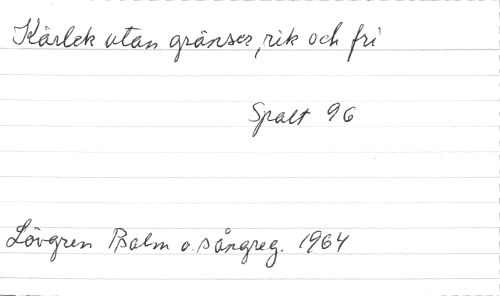 Kärlek utan gränser, rik och fri
Spalt 96
Lövgren Psalm o. sångreg. 1964